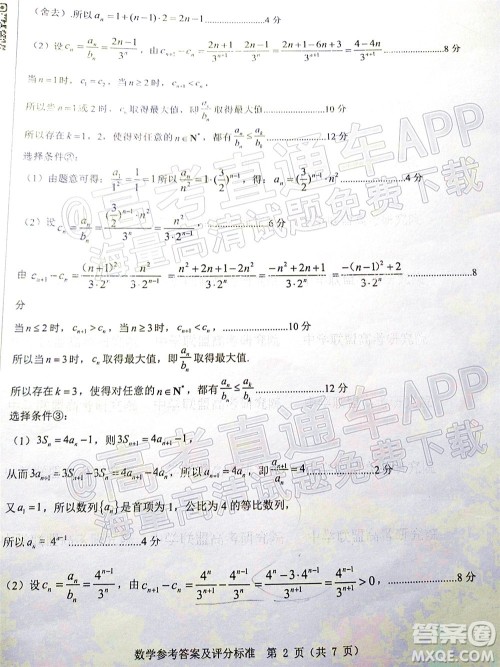 (舍去).所以 aₙ=1+(n-1)·2=2n-1 ............4分
(2)设 cₙ = aₙ/bₙ = (2n-1)/3ⁿ,由 cₙ₊₁-cₙ = (2n+1)/3ⁿ⁺¹ - (2n-1)/3ⁿ = (2n+1-6n+3)/3ⁿ⁺¹ = (4-4n)/3ⁿ⁺¹ ............8分
当 n=1 时,c₁=c₂,当 n≥2 时,cₙ₊₁<cₙ,
所以当 n=1 或 2 时,cₙ 取得最大值,即 aₙ/bₙ 取得最大值. ............10分
所以存在 k=1,2,使得对任意的 n∈N*,都有 aₙ/bₙ ≤ aₖ/bₖ ............12分
选择条件②:
(1)由题意可得:aₙ/n² = a₁/1²·(3/2)ⁿ⁻¹ = 1×(3/2)ⁿ⁻¹,得:aₙ=(3/2)ⁿ⁻¹·n² ............4分
(2)设 cₙ = aₙ/bₙ = (3/2)ⁿ⁻¹·n²/3ⁿ = n²/(3·2ⁿ⁻¹) ............6分
由 cₙ₊₁-cₙ = (n+1)²/(3·2ⁿ) - n²/(3·2ⁿ⁻¹) = (n²+2n+1-2n²)/(3·2ⁿ) = (-n²+2n+1)/(3·2ⁿ) = (-(n-1)²+2)/(3·2ⁿ) ............8
分
当 n≤2 时,cₙ₊₁>cₙ,当 n≥3 时,cₙ₊₁<cₙ, ............10分
所以当 n=3 时,cₙ 取得最大值,即 aₙ/bₙ 取得最大值.
所以存在 k=3,使得对任意的 n∈N*,都有 aₙ/bₙ ≤ aₖ/bₖ ............12分
选择条件③:
(1)3Sₙ=4aₙ-1,则 3Sₙ₊₁=4aₙ₊₁-1,
从而 3aₙ₊₁=3Sₙ₊₁-3Sₙ=4aₙ₊₁-4aₙ,即 aₙ₊₁=4aₙ,aₙ₊₁/aₙ=4 ............2分
又 a₁=1,所以数列{aₙ}是首项为1,公比为4的等比数列,
所以 aₙ=4ⁿ⁻¹ ............4分
(2)设 cₙ = aₙ/bₙ = 4ⁿ⁻¹/3ⁿ,由 cₙ₊₁-cₙ = 4ⁿ/3ⁿ⁺¹ - 4ⁿ⁻¹/3ⁿ = (4ⁿ-3·4ⁿ⁻¹)/3ⁿ⁺¹ = 4ⁿ⁻¹/3ⁿ⁺¹>0, ............8分
数学参考答案及评分标准 第 2 页(共 7 页)
@高考直通车APP
海量高清试题免费下载
@高考直通车APP
海量高清试题免费下载
答案圈